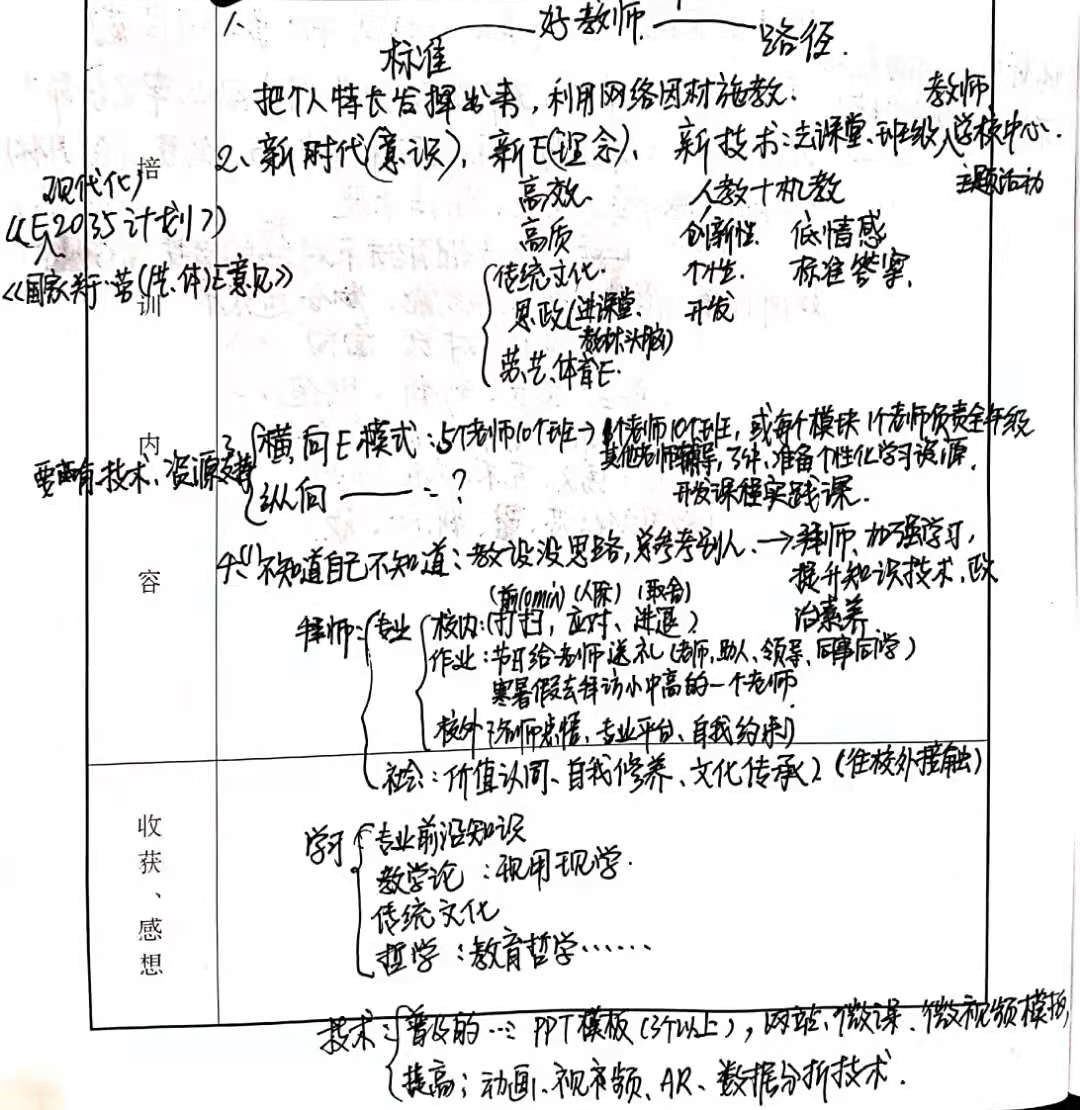 1、
好教师
标准 路径.
把个人特长发挥出来，利用网络因材施教.
2、新时代(意识)，新E(理念)、新技术:去课堂、班级入学校中心.
教师
主题活动
高效 人教十机教
高质 创新性 低情感
个性 标准答案.
开发
传统文化
思政(进课堂、
教材、头脑)
劳、艺、体育E.
现代化
《E2035计划》
《国家关于劳(艺.体)E意见》
培训内容
3、横向E模式:5个老师10个班→1个老师10个班，或每个模块1个老师负责全年级
其他老师辅导，了解、准备个性化学习资源.
开发课程实践课.
纵向——:?
要有技术、资源支持
4、(1)不知道自己不知道:教设没思路，总参考别人.→拜师、加强学习，
提升知识技术、政
治素养
(前10min)(人际)(取舍)
拜师:专业 校内:(打扫，应对、进退)
作业:节日给老师送礼(老师、助人、领导、同事同学)
寒暑假去拜访小中高的一个老师.
校外 、专业平台、自我约束)
社会:价值认同、自我修养、文化传承)(往校外接触)
收获、感想
学习 专业前沿知识
教学论:现用现学.
传统文化
哲学:教育哲学……
技术:普及的…:PPT模板(3个以上)，网站、微课、微视频模板，
提高:动画、视频、AR、数据分析技术.